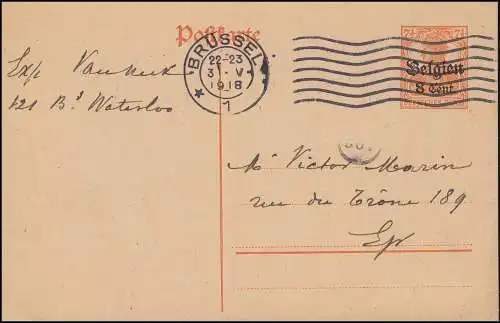 Postkarte
BRÜSSEL
22-23
3 · V
1918
1
7½ 7½
Belgien
8 Cent.
Exp
121 Bd Waterloo
Mr Victor Marin
rue du Trône 189